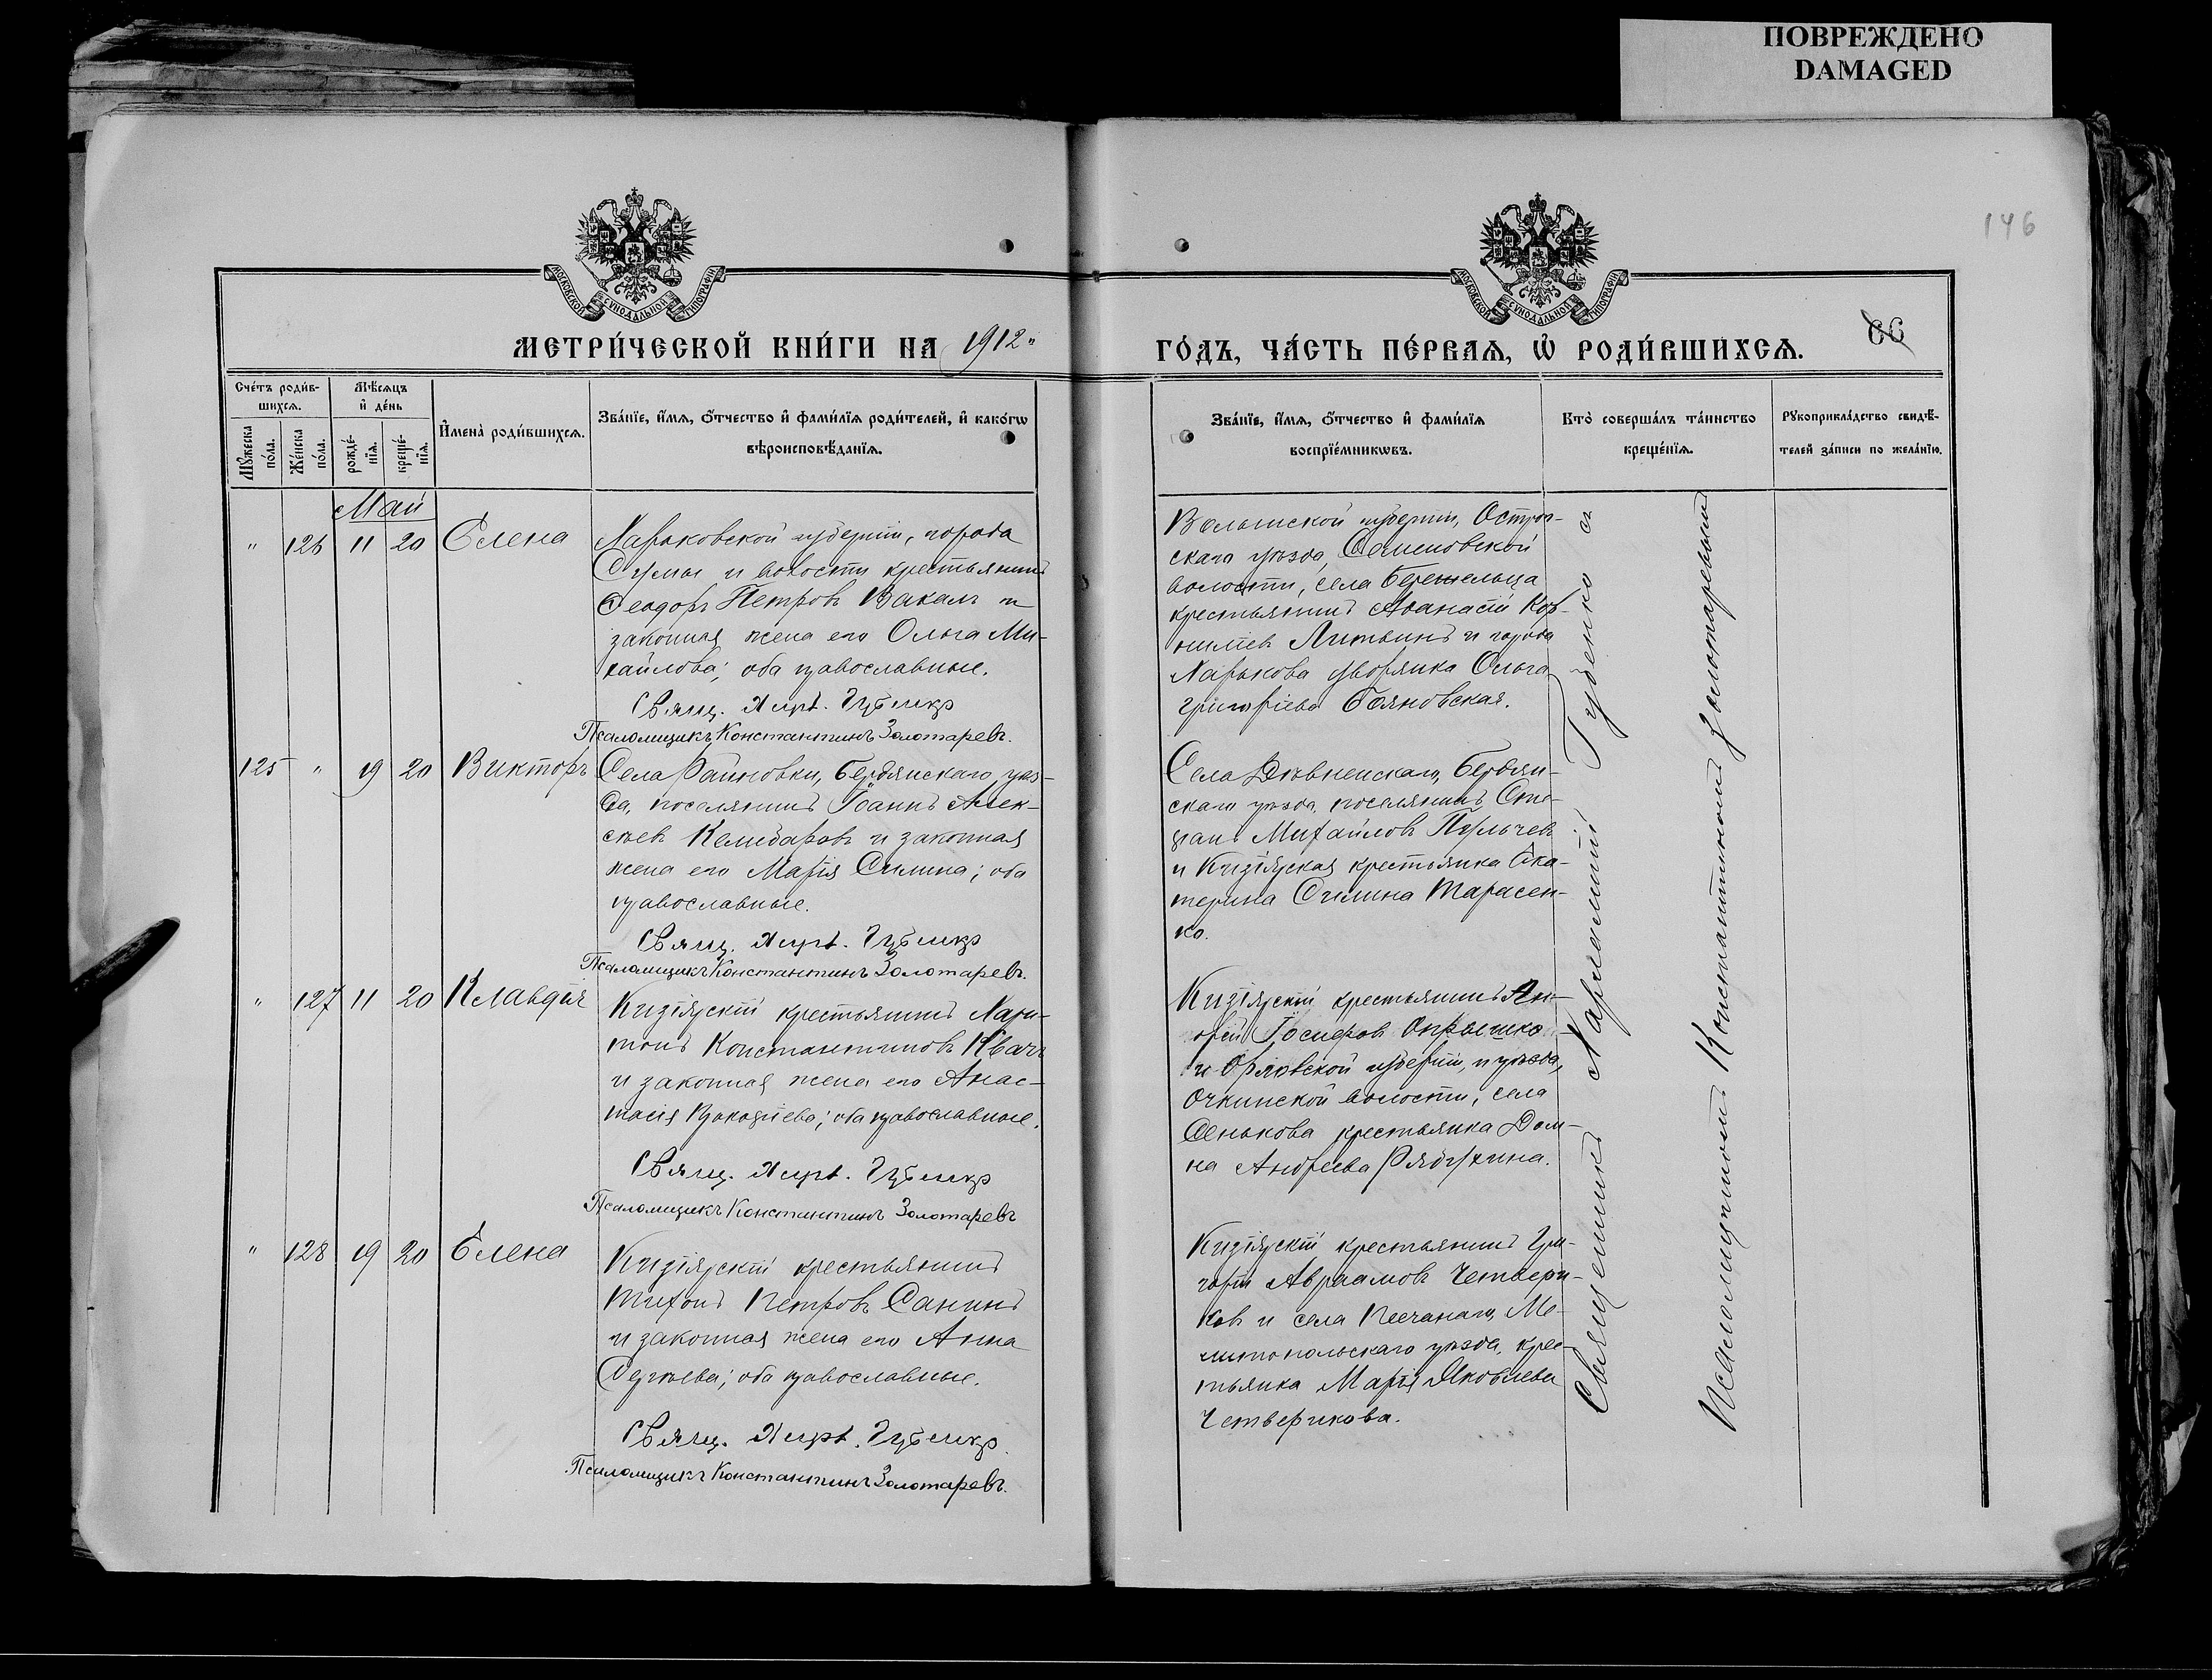 ПОВРЕЖДЕНО
DAMAGED
146
МОСКОВСКОЙ СѴНОДАЛЬНОЙ ТИПОГРАФІИ
МОСКОВСКОЙ СѴНОДАЛЬНОЙ ТИПОГРАФІИ
МЕТРИ́ЧЕСКОЙ КНИ́ГИ НА 1912"
ГО́ДЪ, ЧА́СТЬ ПЕ́РВАѦ, Ѡ҆ РОДИ́ВШИХСѦ.
Сче́тъ роди́в-
шихсѧ.
Мѣ́сѧцъ
и҆ де́нь
Мꙋ́жеска
по́ла.
Же́нска
по́ла.
рожде́-
нїѧ.
креще́-
нїѧ.
И҆мена̀ роди́вшихсѧ.
Зва́нїе, и҆́мѧ, ѻ҆́тчество и҆ фами́лїѧ роди́телей, и҆ како́гѡ
вѣроисповѣ́данїѧ.
Зва́нїе, и҆́мѧ, ѻ҆́тчество и҆ фами́лїѧ
воспрїе́мникѡвъ.
Кто̀ соверша́лъ та́инство
креще́нїѧ.
Рꙋкоприкла́дство свидѣ́-
телей за́писи по жела́нїю.
Май
" 126 11 20 Елена
Харьковской губерніи, города
Сумы и волости крестьянинъ
Ѳеодоръ Петровъ Вакалъ и
законная жена его Ольга Ми-
хайлова; оба православные.
Свящ. Харл. Губенко
Псаломщикъ Константинъ Золотаревъ.
Волынской губерніи, Острог-
скаго уѣзда, Семеновской
волости, села
крестьянинъ Аѳанасій Кор-
ниліевъ Литвинъ и города
Харькова дворянка Ольга
Григоріева Бояновская.
125 " 19 20 Викторъ
Села Райновки, Бердянскаго уѣз-
да, поселянинъ Іоаннъ Алек-
сѣевъ Келибаровъ и законная
жена его Марія Силина; оба
православные.
Свящ. Харл. Губенко
Псаломщикъ Константинъ Золотаревъ.
Села Бердян-
скаго уѣзда, поселянинъ Сте-
фанъ Михайловъ Пульчевъ
и Кизіярская крестьянка Ека-
терина Силина Тарасен-
ко.
" 127 11 20 Клавдія
Кизіярскій крестьянинъ Хари-
тонъ Константиновъ Квачъ
и законная жена его Анас-
тасія Прокофіева; оба православные.
Свящ. Харл. Губенко
Псаломщикъ Константинъ Золотаревъ
Кизіярскій крестьянинъ Ан-
дрей Іосифовъ Опрышко
и Орловской губерніи, и уѣзда,
Очкинской волости, села
Сенькова крестьянка Дом-
на Андреева Рябухина.
" 128 19 20 Елена
Кизіярскій крестьянинъ
Тихонъ Петровъ Санинъ
и законная жена его Анна
Сергѣева; оба православные.
Свящ. Харл. Губенко.
Псаломщикъ Константинъ Золотаревъ.
Кизіярскій крестьянинъ Гри-
горій Авраамовъ Четвери-
ковъ и села Песчанаго, Ме-
литопольскаго уѣзда, крес-
тьянка Марія Яковлева
Четверикова.
Священникъ Харлампій Губенко съ
Псаломщикомъ Константиномъ Золотаревымъ